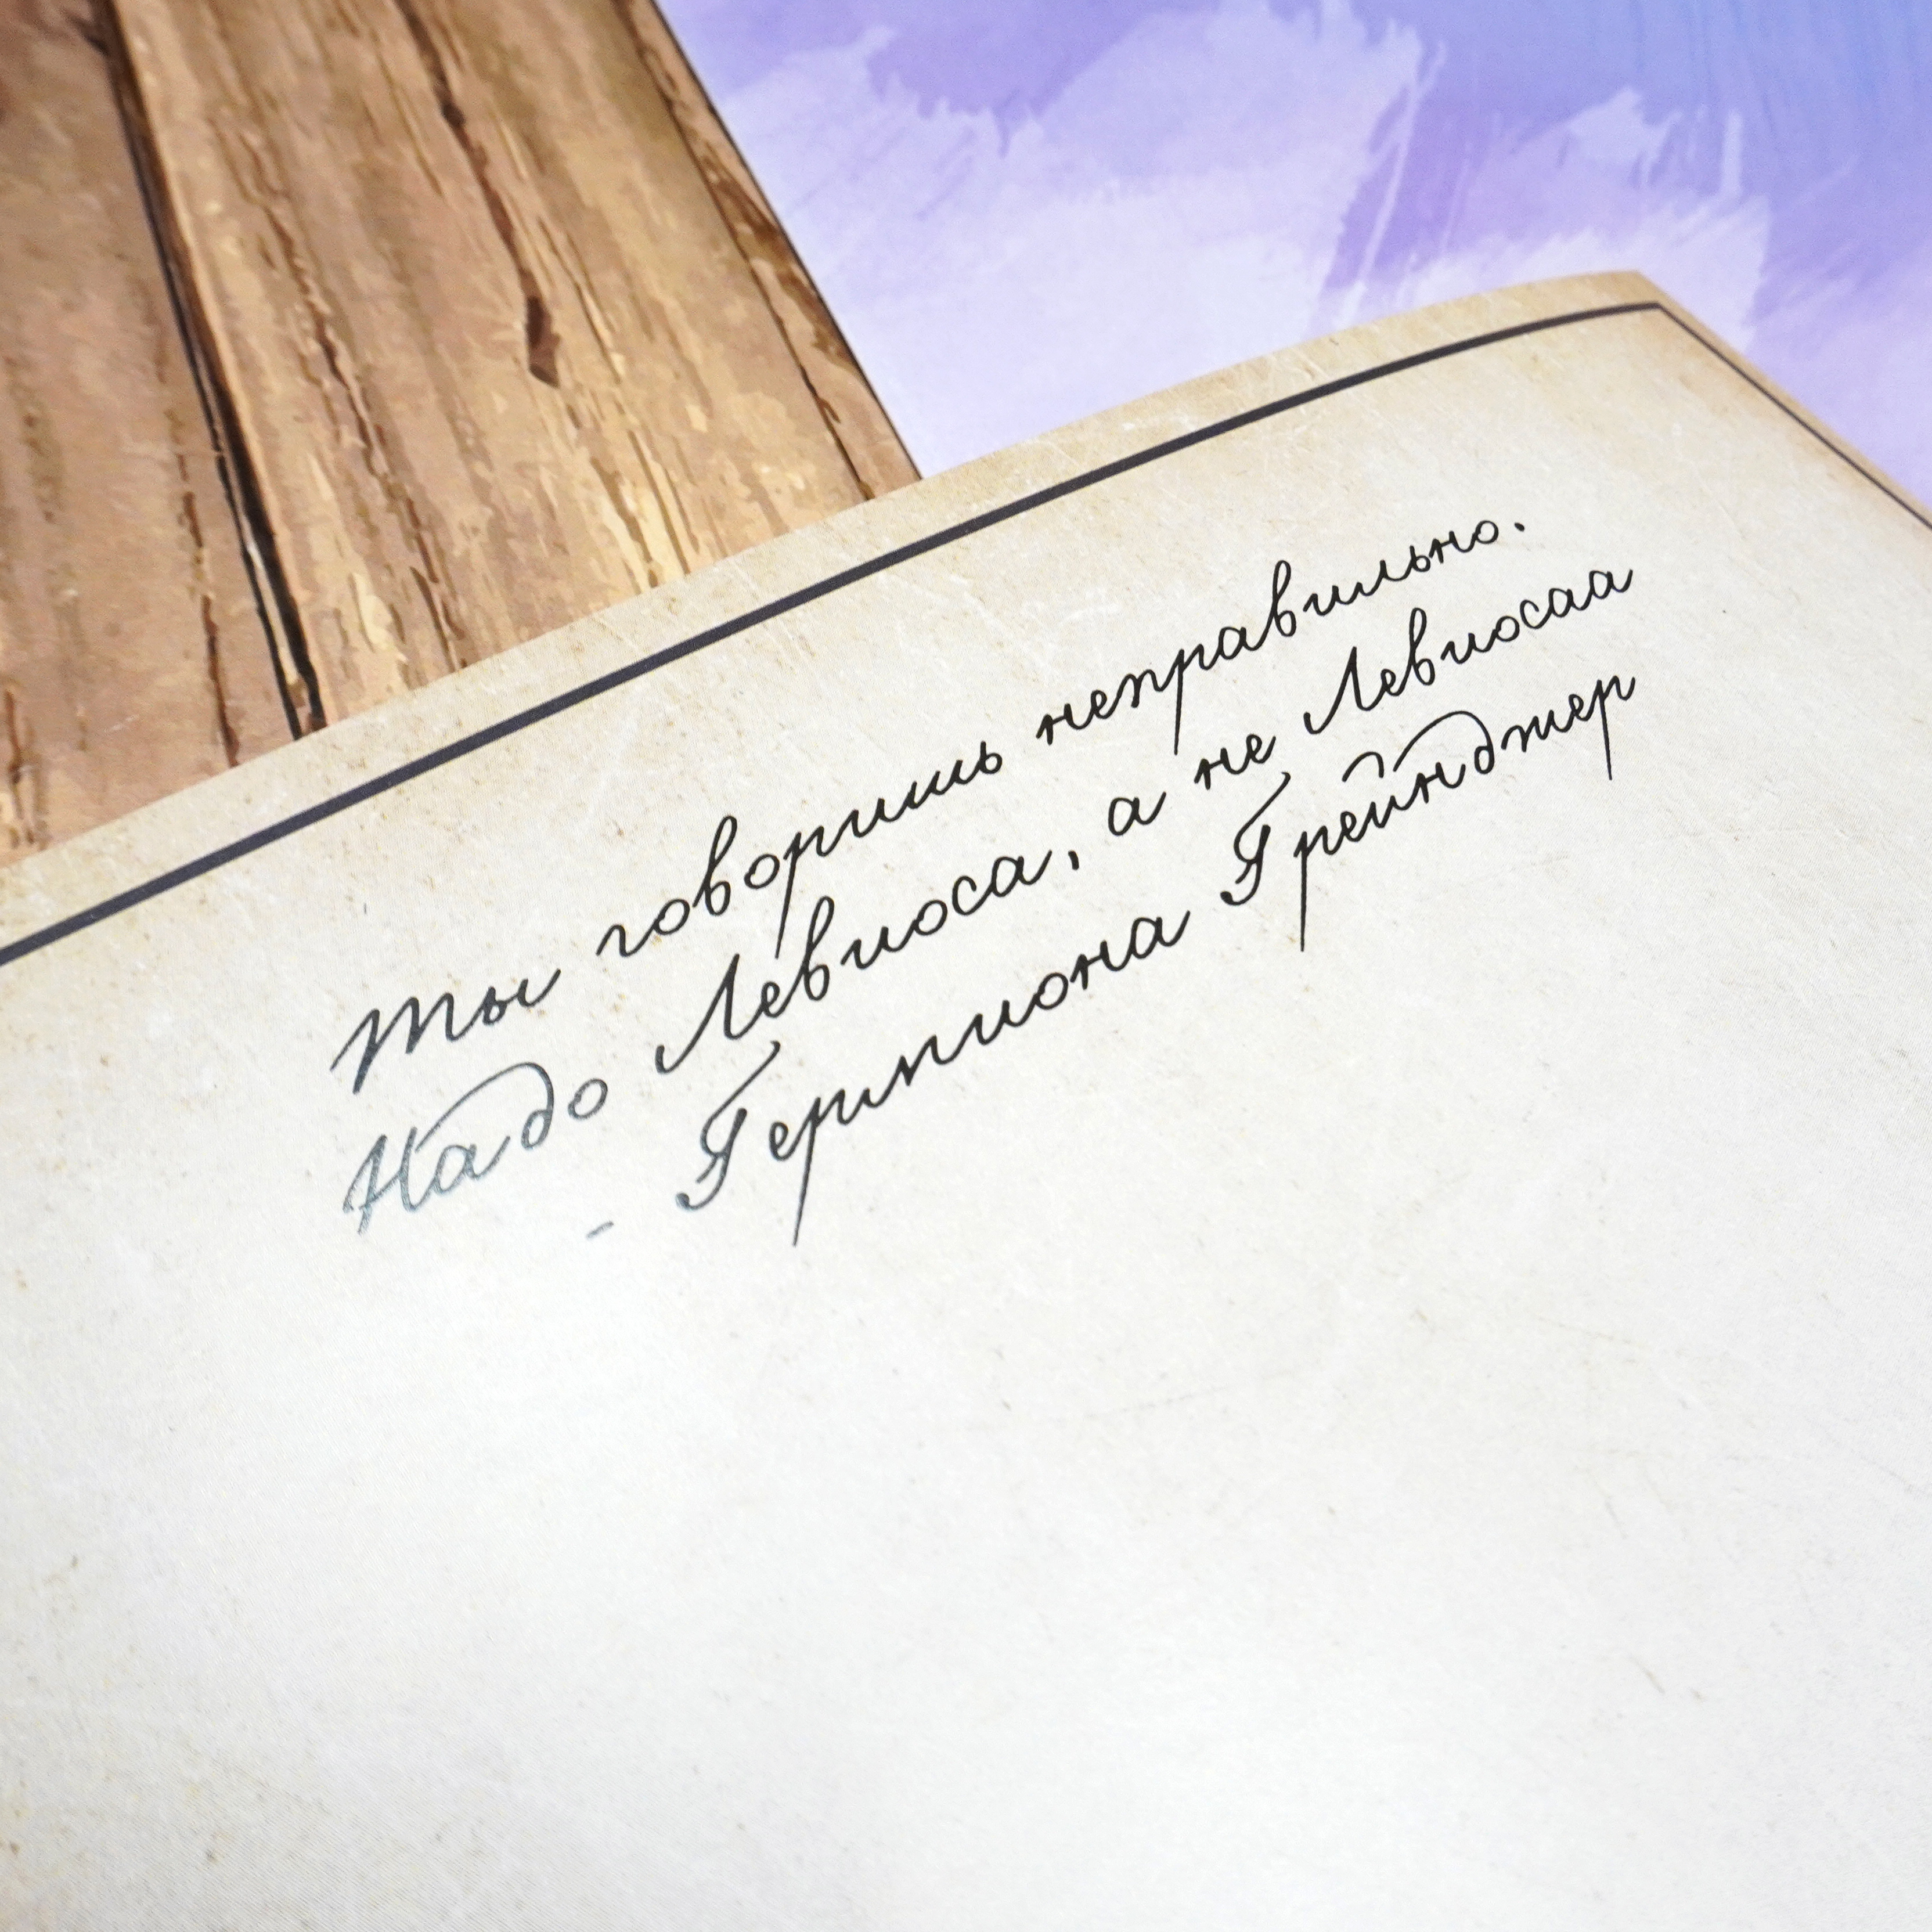 Ты говоришь неправильно.
Надо Левиоса, а не Левиосаа
- Гермиона Грейнджер